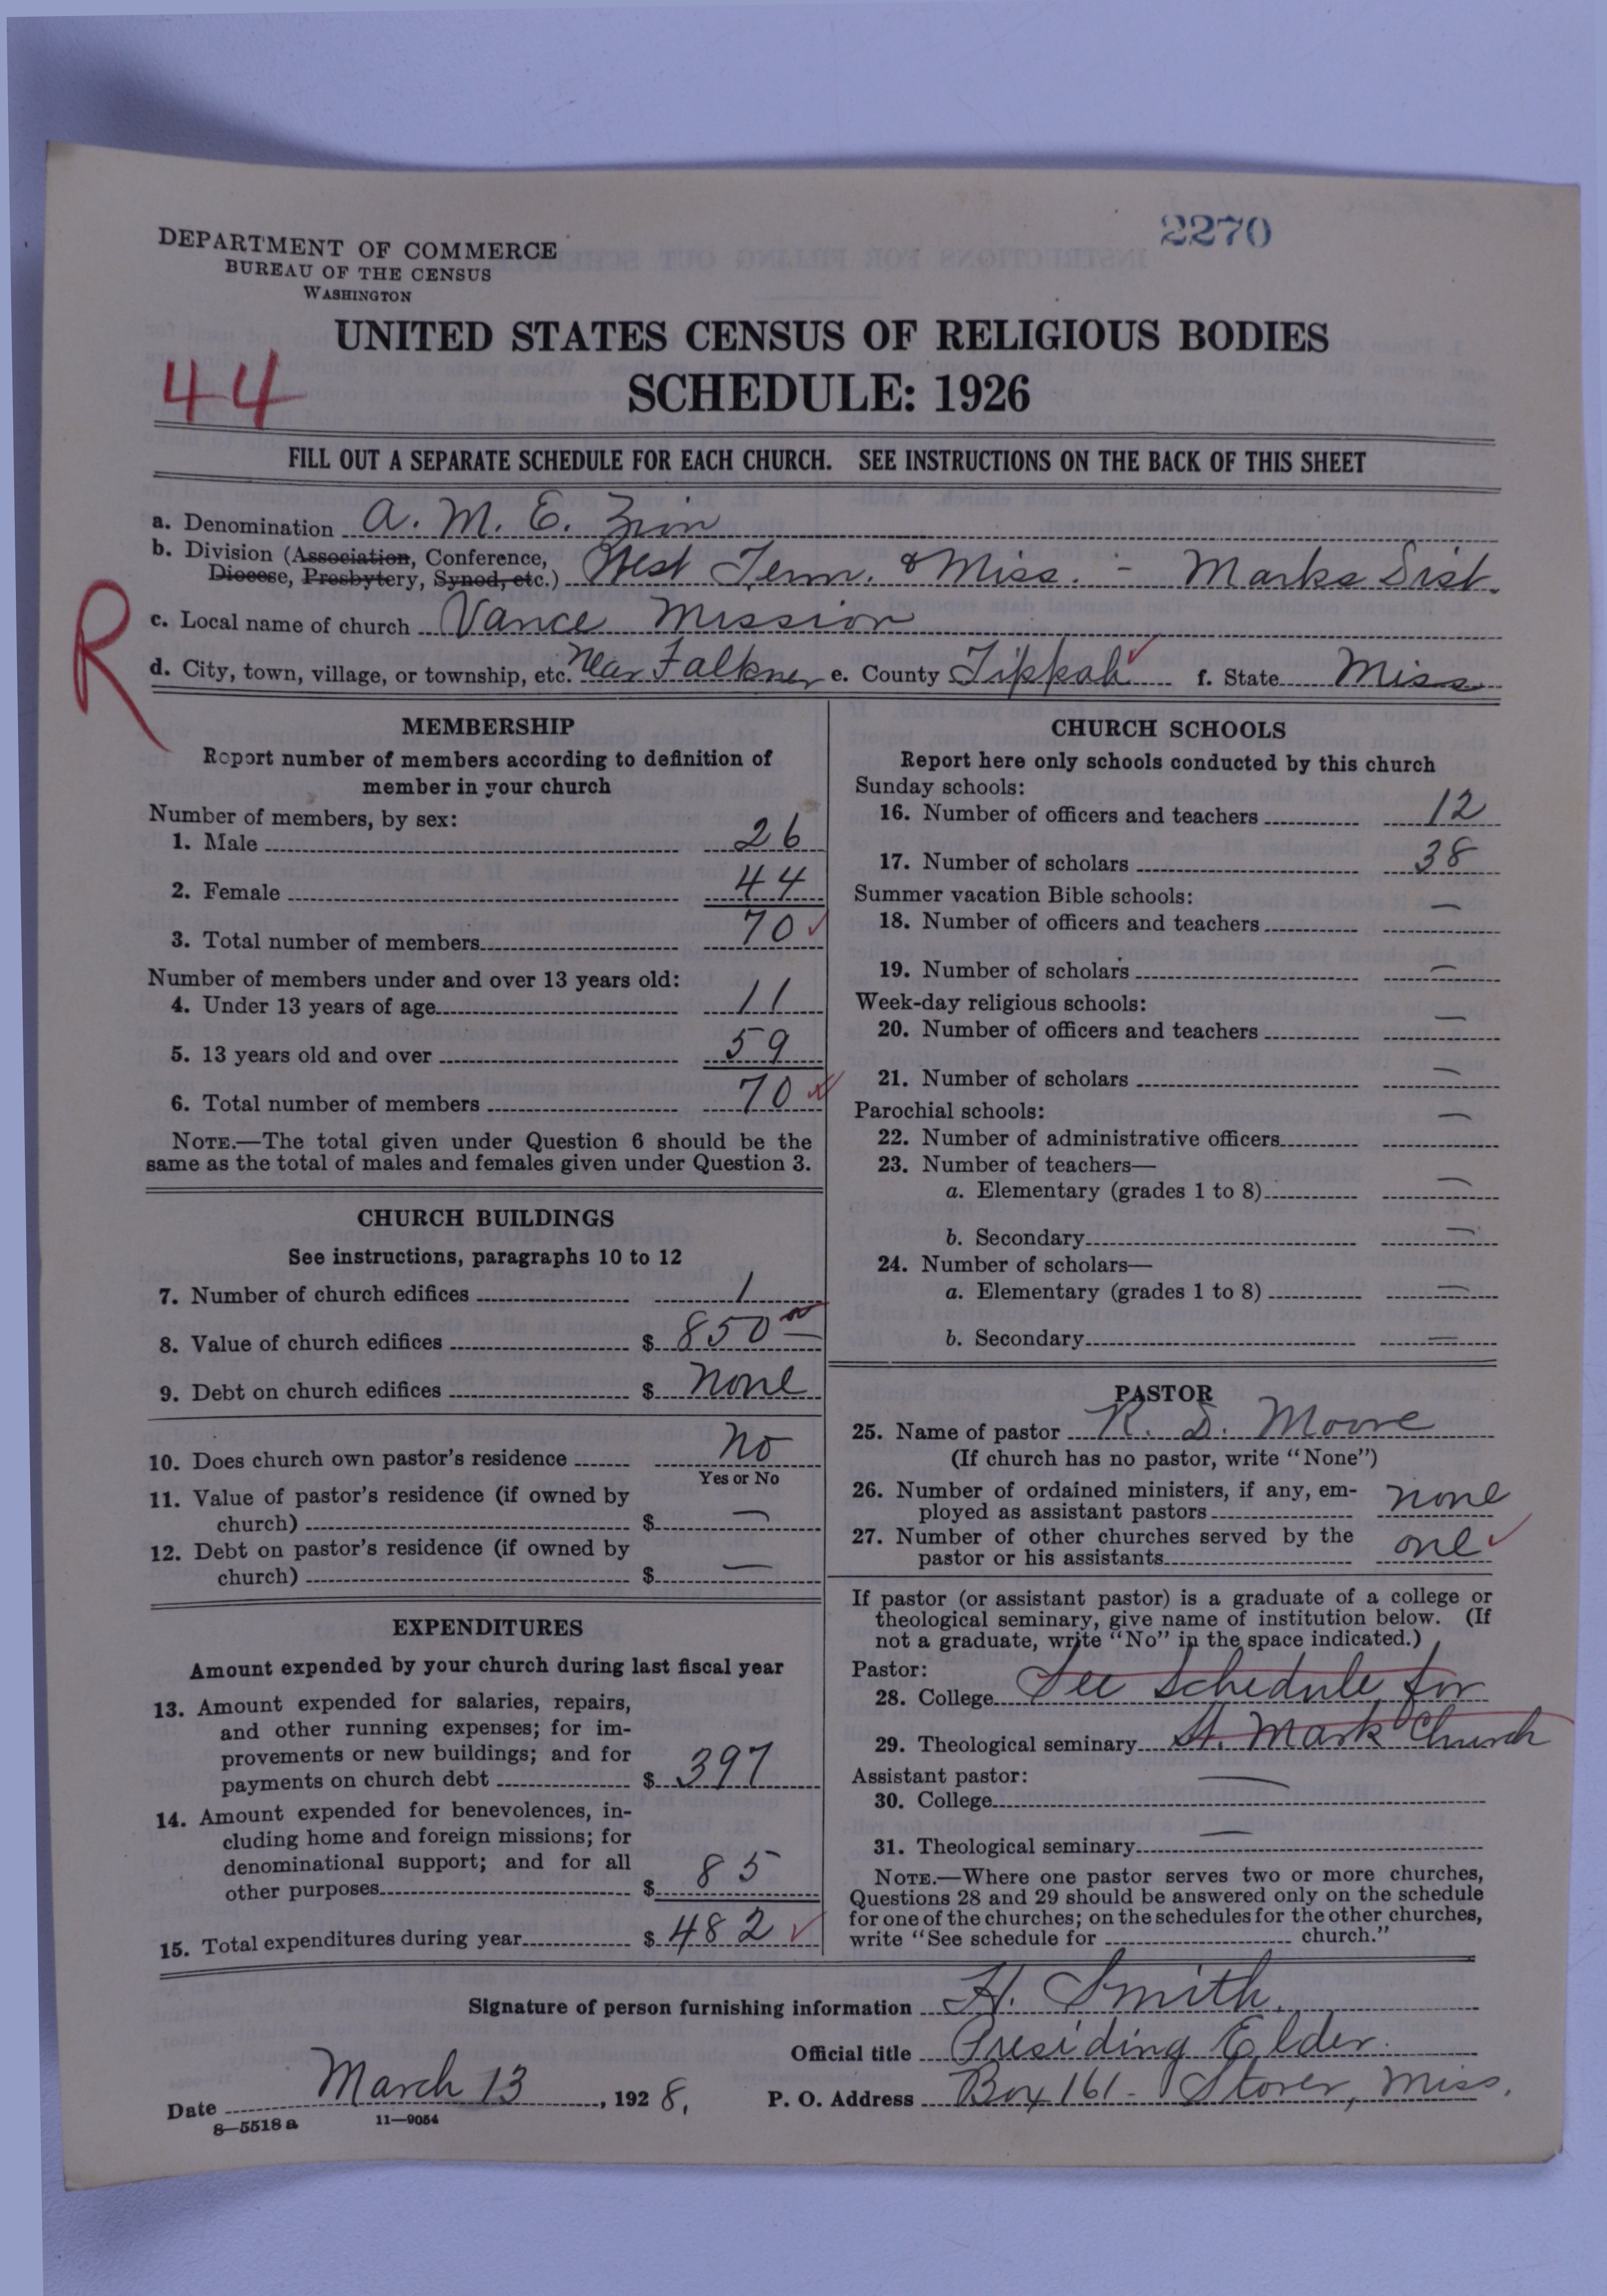 2270
DEPARTMENT OF COMMERCE
BUREAU OF THE CENSUS
WASHINGTON
UNITED STATES CENSUS OF RELIGIOUS BODIES
44
SCHEDULE: 1926
FILL OUT A SEPARATE SCHEDULE FOR EACH CHURCH. SEE INSTRUCTIONS ON THE BACK OF THIS SHEET
a. Denomination A. M. E. Zion
b. Division (Association, Conference,
Diocese, Presbytery, Synod, etc.) West Tenn. & Miss. - Marks Dist.
R
c. Local name of church Vance Mission
d. City, town, village, or township, etc. Near Falkner e. County Tippah f. State Miss
MEMBERSHIP
Report number of members according to definition of
member in your church
Number of members, by sex:
1. Male 26
2. Female 44
3. Total number of members 70
Number of members under and over 13 years old:
4. Under 13 years of age 11
5. 13 years old and over 59
6. Total number of members 70
NOTE.—The total given under Question 6 should be the
same as the total of males and females given under Question 3.
CHURCH BUILDINGS
See instructions, paragraphs 10 to 12
7. Number of church edifices 1
8. Value of church edifices $ 850 00
9. Debt on church edifices $ none
10. Does church own pastor's residence no
Yes or No
11. Value of pastor's residence (if owned by
church) $ —
12. Debt on pastor's residence (if owned by
church) $ —
EXPENDITURES
Amount expended by your church during last fiscal year
13. Amount expended for salaries, repairs,
and other running expenses; for im-
provements or new buildings; and for
payments on church debt $ 397
14. Amount expended for benevolences, in-
cluding home and foreign missions; for
denominational support; and for all
other purposes $ 85
15. Total expenditures during year $ 482
CHURCH SCHOOLS
Report here only schools conducted by this church
Sunday schools:
16. Number of officers and teachers 12
17. Number of scholars 38
Summer vacation Bible schools:
18. Number of officers and teachers —
19. Number of scholars —
Week-day religious schools:
20. Number of officers and teachers —
21. Number of scholars —
Parochial schools:
22. Number of administrative officers —
23. Number of teachers—
a. Elementary (grades 1 to 8) —
b. Secondary —
24. Number of scholars—
a. Elementary (grades 1 to 8) —
b. Secondary —
PASTOR
25. Name of pastor R. D. Moore
(If church has no pastor, write "None")
26. Number of ordained ministers, if any, em-
ployed as assistant pastors none
27. Number of other churches served by the
pastor or his assistants one
If pastor (or assistant pastor) is a graduate of a college or
theological seminary, give name of institution below. (If
not a graduate, write "No" in the space indicated.)
Pastor:
28. College See Schedule for
29. Theological seminary St. Mark Church
Assistant pastor:
30. College —
31. Theological seminary —
NOTE.—Where one pastor serves two or more churches,
Questions 28 and 29 should be answered only on the schedule
for one of the churches; on the schedules for the other churches,
write "See schedule for church."
Signature of person furnishing information H. Smith
Official title Presiding Elder.
Date March 13, 1928, P. O. Address Box 161 - Stover, Miss.
8—5518 a 11—9054